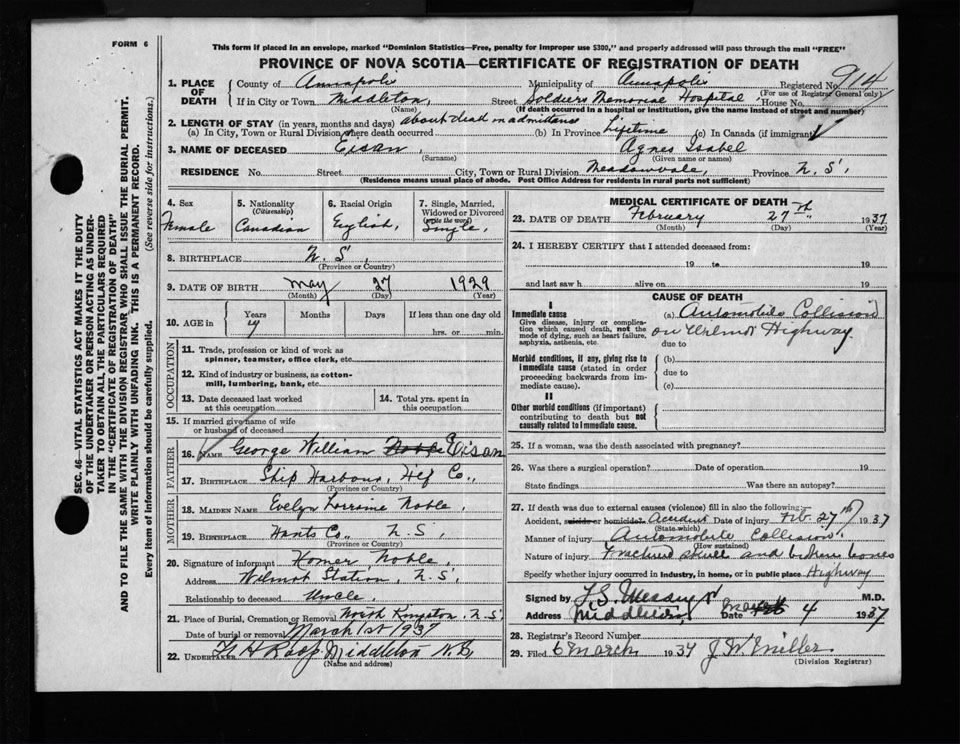 FORM 6
This form if placed in an envelope, marked "Dominion Statistics—Free, penalty for improper use $300," and properly addressed will pass through the mail "FREE"
PROVINCE OF NOVA SCOTIA—CERTIFICATE OF REGISTRATION OF DEATH
1. PLACE OF DEATH
County of Annapolis Municipality of Annapolis Registered No. 914
(For use of Registrar General only)
If in City or Town Middleton, Street Soldiers Memorial Hospital House No.
(Name) (If death occurred in a hospital or institution, give the name instead of street and number)
2. LENGTH OF STAY (in years, months and days) about dead on admittance
(a) In City, Town or Rural Division where death occurred (b) In Province Lifetime (c) In Canada (if immigrant)
3. NAME OF DECEASED Eisan, Agnes Isabel
(Surname) (Given name or names)
RESIDENCE No. Street City, Town or Rural Division Meadowvale, Province N. S.
(Residence means usual place of abode. Post Office Address for residents in rural parts not sufficient)
4. Sex
Female
5. Nationality
(Citizenship)
Canadian
6. Racial Origin
English,
7. Single, Married, Widowed or Divorced
(write the word)
Single,
8. BIRTHPLACE N. S.
(Province or Country)
9. DATE OF BIRTH May 27 1929
(Month) (Day) (Year)
10. AGE in Years Months Days If less than one day old
hrs. or min.
OCCUPATION
11. Trade, profession or kind of work as spinner, teamster, office clerk, etc.
12. Kind of industry or business, as cotton-mill, lumbering, bank, etc.
13. Date deceased last worked at this occupation
14. Total yrs. spent in this occupation
15. If married give name of wife or husband of deceased
FATHER
16. NAME George William Noble Eisan
17. BIRTHPLACE Ship Harbour, Hfx Co.,
(Province or Country)
MOTHER
18. MAIDEN NAME Evelyn Lorraine Noble,
19. BIRTHPLACE Hants Co., N. S.
(Province or Country)
20. Signature of informant Homer Noble,
Address Wilmot Station, N. S.
Relationship to deceased Uncle,
21. Place of Burial, Cremation or Removal North Kingston, N. S.
Date of burial or removal March 1st 1937
22. UNDERTAKER Middleton
(Name and address)
MEDICAL CERTIFICATE OF DEATH
23. DATE OF DEATH February 27th 1937
(Month) (Day) (Year)
24. I HEREBY CERTIFY that I attended deceased from:
19 to 19
and last saw h alive on 19
CAUSE OF DEATH
I
Immediate cause
Give disease, injury or complication which caused death, not the mode of dying, such as heart failure, asphyxia, asthenia, etc.
(a) Automobile Collision
on Wilmot Highway
due to
Morbid conditions, if any, giving rise to immediate cause (stated in order proceeding backwards from immediate cause).
(b)
due to
(c)
II
Other morbid conditions (if important) contributing to death but not causally related to immediate cause.
25. If a woman, was the death associated with pregnancy?
26. Was there a surgical operation? Date of operation 19
State findings Was there an autopsy?
27. If death was due to external causes (violence) fill in also the following:
Accident, suicide or homicide? Accident Date of injury Feb. 27th 1937
(State which)
Manner of injury Automobile Collision
(How sustained)
Nature of injury Fractured skull and broken bones
Specify whether injury occurred in industry, in home, or in public place Highway
Signed by M.D.
Address Middleton Date March 4 1937
28. Registrar's Record Number
29. Filed 6 March 1937 J. W. Miller
(Division Registrar)
SEC. 46—VITAL STATISTICS ACT MAKES IT THE DUTY
OF THE UNDERTAKER OR PERSON ACTING AS UNDERTAKER
TO OBTAIN ALL THE PARTICULARS REQUIRED
IN THE "CERTIFICATE OF REGISTRATION OF DEATH"
AND TO FILE THE SAME WITH THE DIVISION REGISTRAR WHO SHALL ISSUE THE BURIAL PERMIT.
WRITE PLAINLY WITH UNFADING INK. THIS IS A PERMANENT RECORD.
Every item of information should be carefully supplied. (See reverse side for instructions.)